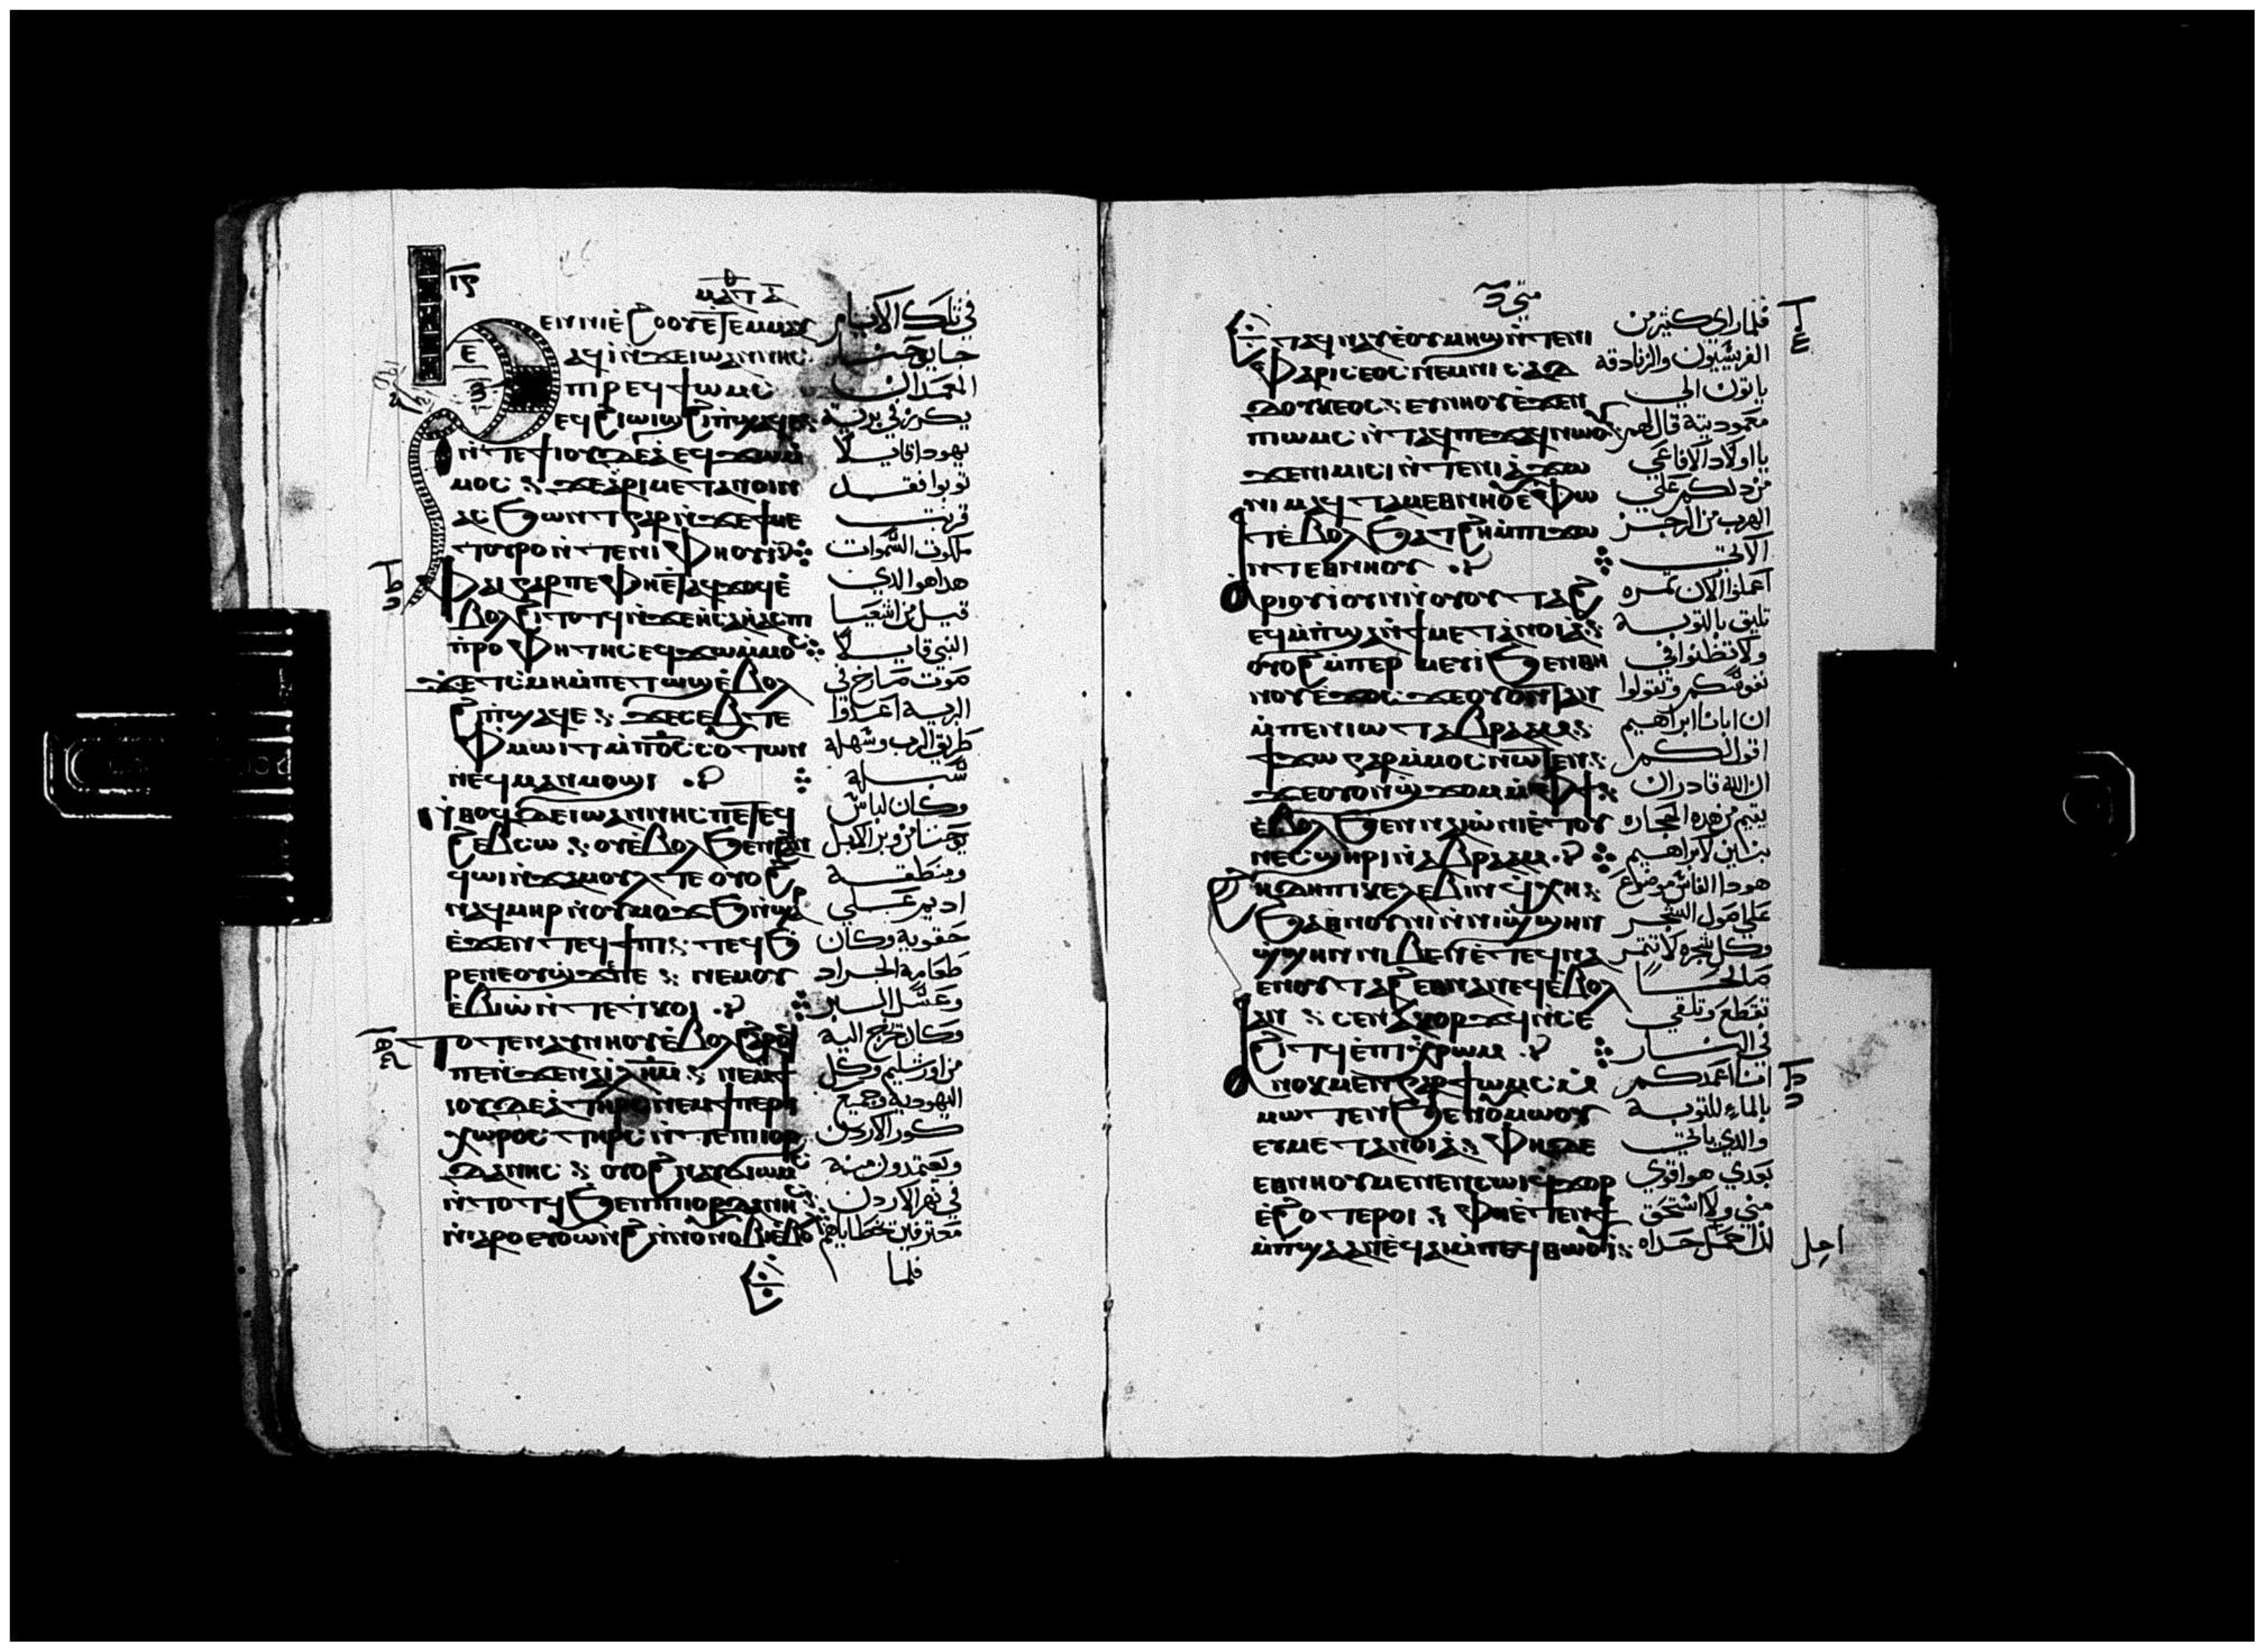 ⲙⲁⲧⲑ
ⲉⲛⲛⲓⲉϩⲟⲟⲩ ⲉⲧⲉⲙⲙⲁⲩ
ⲁϥⲓ ⲛϫⲉ ⲓⲱⲁⲛⲛⲏⲥ
ⲡⲓⲣⲉϥϯⲱⲙⲥ
ⲉϥϩⲓⲱⲓϣ ϩⲓ ⲡϣⲁϥⲉ
ⲛⲧⲉ ϯⲓⲟⲩⲇⲉⲁ ⲉϥϫⲱⲙ
ⲙⲟⲥ ϫⲉ ⲁⲣⲓⲙⲉⲧⲁⲛⲟⲓⲛ
ⲁⲥϧⲱⲛⲧ ⲅⲁⲣ ⲛϫⲉ ϯⲙⲉ
ⲧⲟⲩⲣⲟ ⲛⲧⲉ ⲛⲓⲫⲏⲟⲩⲓ
ⲫⲁⲓ ⲅⲁⲣ ⲡⲉ ⲫⲏ ⲉⲧⲁϥϫⲟϥ ⲉ
ⲃⲟⲗ ϩⲓⲧⲟⲧϥ ⲛϫⲉ ⲏⲥⲁⲏⲁⲥ ⲡⲓ
ⲡⲣⲟⲫⲏⲧⲏⲥ ⲉϥϫⲱ ⲙⲙⲟⲥ
ϫⲉ ⲧⲥⲙⲏ ⲙⲡⲉⲧⲱϣ ⲉⲃⲟⲗ
ϩⲓ ⲡϣⲁϥⲉ ϫⲉ ⲥⲉⲃⲧⲉ
ⲫⲙⲱⲓⲧ ⲙⲡⲟⲥ ⲥⲟⲩⲧⲱⲛ
ⲛⲉϥⲙⲁⲛⲙⲟϣⲓ
ⲛⲑⲟϥ ⲇⲉ ⲓⲱⲁⲛⲛⲏⲥ ⲡⲉⲧⲉϥ
ϩⲉⲃⲥⲱ ⲟⲩⲉⲃⲟⲗ ϧⲉⲛ ϩⲁⲛ
ϥⲱⲓ ⲛϫⲁⲙⲟⲩⲗ ⲧⲉ ⲟⲩⲟϩ
ⲛⲁϥⲙⲏⲣ ⲛⲟⲩⲙⲟϫϧ ⲛϣⲁⲣ
ⲉϫⲉⲛ ⲧⲉϥϯⲡⲓ ⲧⲉϥϧ
ⲣⲉ ⲛⲉ ⲟⲩϣϫⲉ ⲡⲉ ⲛⲉⲙ ⲟⲩ
ⲉⲃⲓⲱ ⲛⲧⲉ ⲧⲕⲟⲓ
ⲧⲟⲧⲉ ⲛⲁⲩⲛⲏⲟⲩ ⲉⲃⲟⲗ ϩⲁⲣⲟϥ
ⲡⲉ ⲛϫⲉ ⲛⲁ ⲓⲗⲏⲙ ⲛⲉⲙ ϯ
ⲓⲟⲩⲇⲉⲁ ⲧⲏⲣⲥ ⲛⲉⲙ ϯⲡⲉⲣⲓ
ⲭⲱⲣⲟⲥ ⲧⲏⲣⲥ ⲛⲧⲉ ⲡⲓⲓⲟⲣ
ⲇⲁⲛⲏⲥ ⲟⲩⲟϩ ⲛⲁⲩϭⲓⲱⲙⲥ
ⲛⲧⲟⲧϥ ϧⲉⲛ ⲡⲓⲓⲟⲣⲇⲁⲛⲏⲥ
ⲉⲩⲟⲩⲱⲛϩ ⲛⲛⲟⲩⲛⲟⲃⲓ ⲉⲃⲟⲗ
في تلك الايام
جا يوحنا
المعمدان
يكرز في برية
يهودا قايلا
توبوا فقد
قربت
ملكوت السموات
هدا هو الدي
قيل من اشعيا
النبي قايلا
صوت صارخ في
البرية اعدوا
طريق الرب وسهلو
سبله
وكان لباس
يوحنا من وبر الابل
ومنطقة
اديم علي
حقويه وكان
طعامه الجراد
وعسل البر
وكان تخرج اليه
من اورشليم وكل
اليهودية وجميع
كور الاردن
ويعتمدون منه
في نهر الاردن
معترفين بخطاياهم
فلما
متي
ⲉⲧⲁϥⲛⲁⲩ ⲉⲟⲩⲙⲏϣ ⲛⲧⲉ ⲛⲓ
ⲫⲁⲣⲓⲥⲉⲟⲥ ⲛⲉⲙ ⲛⲓⲥⲁⲇ
ⲇⲟⲩⲕⲉⲟⲥ ⲉⲩⲛⲏⲟⲩ ⲉϫⲉⲛ
ⲡⲓⲱⲙⲥ ⲛⲧⲁϥ ⲡⲉϫⲁϥ ⲛⲱⲟⲩ
ϫⲉ ⲛⲓⲙⲓⲥⲓ ⲛⲧⲉ ⲛⲓⲁϫⲱ
ⲛⲓⲙ ⲁϥⲧⲁⲙⲉ ⲑⲏⲛⲟⲩ ⲉⲫⲱ
ⲧ ⲉⲃⲟⲗ ϧⲁⲧϩⲏ ⲙⲡϫⲱ
ⲛⲧ ⲉⲑⲛⲏⲟⲩ
ⲁⲣⲓⲟⲩⲓ ⲟⲩⲛ ⲛⲟⲩⲟⲩⲧⲁϩ
ⲉϥⲙⲡϣⲁ ⲛϯⲙⲉⲧⲁⲛⲟⲓⲁ
ⲟⲩⲟϩ ⲙⲡⲉⲣⲙⲉⲩⲓ ϧⲉⲛ ⲑⲏ
ⲛⲟⲩ ⲉϫⲟⲥ ϫⲉ ⲟⲩⲟⲛⲧⲁⲛ
ⲙⲡⲉⲛⲓⲱⲧ ⲁⲃⲣⲁⲁⲙ
ϯϫⲱ ⲅⲁⲣ ⲙⲙⲟⲥ ⲛⲱⲧⲉⲛ
ϫⲉ ⲟⲩⲟⲛ ϣϫⲟⲙ ⲙⲫϯ
ⲉⲃⲟⲗ ϧⲉⲛ ⲛⲁⲓⲱⲛⲓ ⲉⲧⲟⲩ
ⲛⲉⲥ ϣⲏⲣⲓ ⲛⲁⲃⲣⲁⲁⲙ
ϩⲏⲇⲏ ⲡⲓⲕⲉⲗⲉⲃⲓⲛ ϥⲭⲏ
ϧⲁ ⲑⲛⲟⲩⲛⲓ ⲛⲛⲓϣϣⲏⲛ
ϣϣⲏⲛ ⲛⲓⲃⲉⲛ ⲉⲧⲉ ϥⲛⲁ
ⲉⲛ ⲟⲩⲧⲁϩ ⲉⲑⲛⲁⲛⲉϥ ⲉⲃⲟⲗ
ⲁⲛ ⲥⲉⲛⲁⲕⲟⲣϫϥ ⲛⲥⲉ
ϩⲓⲧϥ ⲉⲡⲓⲭⲣⲱⲙ
ⲁⲛⲟⲕ ⲙⲉⲛ ⲅⲁⲣ ϯⲱⲙⲥ ⲙ
ⲙⲱⲧⲉⲛ ϧⲉⲛ ⲟⲩⲙⲱⲟⲩ
ⲉⲩⲙⲉⲧⲁⲛⲟⲓⲁ ⲫⲏ ⲇⲉ
ⲉⲑⲛⲏⲟⲩ ⲙⲉⲛⲉⲛⲥⲱⲓ ϥϫⲟⲣ
ⲉϩⲟⲧⲉⲣⲟⲓ ⲫⲏ ⲉⲧⲉ ⲛϯ
ⲙⲡϣⲁ ⲁⲛ ⲉϥⲁⲓ ⲙⲡⲉϥⲑⲱⲟⲩⲓ
فلما راي كثير من
الفريسيون والزنادقة
ياتون الي
معموديته قال لهم
يا اولاد الافاعي
من دلكم علي
الهرب من الرجز
الاتي
اعملوا الان ثمره
تليق بالتوبة
ولا تظنوا في
نفوسكم وتقولوا
ان ابانا ابراهيم
اقول لكم
ان الله قادر ان
يقيم من هذه الحجاره
بنين لابراهيم
هودا الفاس موضوع
علي اصول الشجر
وكل شجره لا تثمر
صالحا
تقطع وتلقي
في النار
انا اعمدكم
بالماء للتوبة
والدي ياتي
بعدي هو اقوي
مني ولا استحق
ان احمل حداه
احل